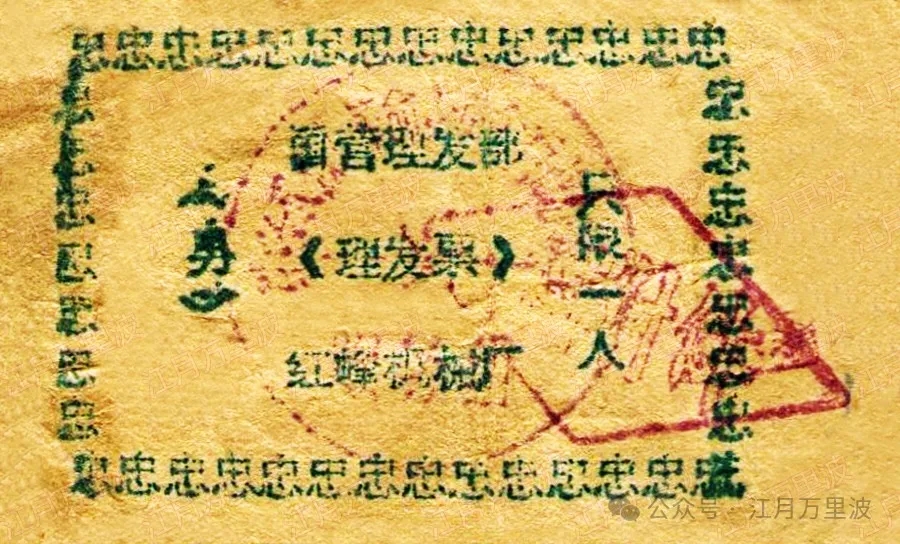 忠忠忠忠忠忠忠忠忠忠忠忠忠忠
国营理发部
《理发票》
红峰机械厂
《男》
只限一人
忠忠忠忠忠忠忠
忠忠忠忠忠忠忠
忠忠忠忠忠忠忠忠忠忠忠忠忠忠
公众号·江月万里波